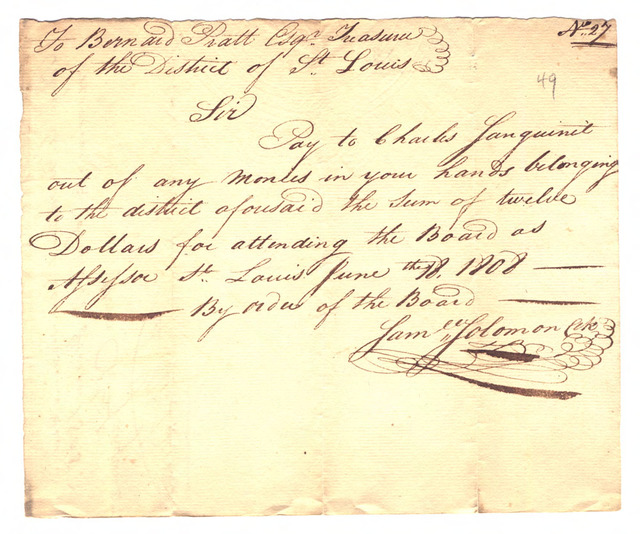 Nº 27
49
To Bernard Pratt Esqr. Treasurer
of the District of St. Louis
Sir
Pay to Charles Sanguinit
out of any monies in your hands belonging
to the district aforesaid the sum of twelve
Dollars for attending the Board as
Assessor St. Louis June the 18, 1808
By order of the Board
Samell Solomon Clk